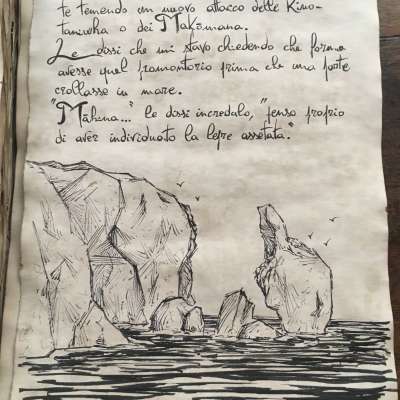 te temendo un nuovo attacco delle Kino-
taniwha o dei Makōmana.
Le dissi che mi stavo chiedendo che forma
avesse quel promontorio prima che una parte
crollasse in mare.
"Māhina..." le dissi incredulo, "penso proprio
di aver individuato la lepre assetata."